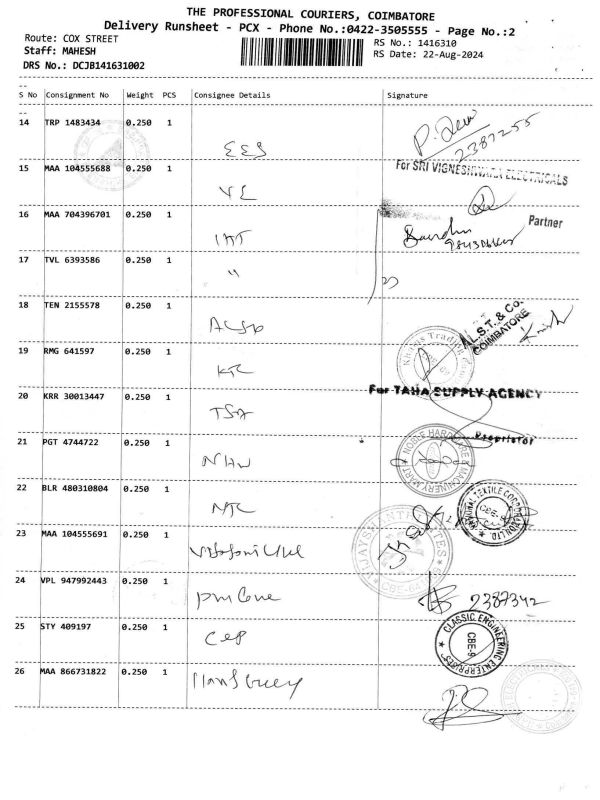 THE PROFESSIONAL COURIERS, COIMBATORE
Delivery Runsheet - PCX - Phone No.:0422-3505555 - Page No.:2
Route: COX STREET
Staff: MAHESH
DRS No.: DCJB141631002
RS No.: 1416310
RS Date: 22-Aug-2024
S No Consignment No Weight PCS Consignee Details Signature
14 TRP 1483434 0.250 1 EES
2387255
15 MAA 104555688 0.250 1 VE
For SRI VIGNESHWARA ELECTRICALS
Partner
16 MAA 704396701 0.250 1
17 TVL 6393586 0.250 1 "
18 TEN 2155578 0.250 1
A.L.S.T. & Co.
COIMBATORE
19 RMG 641597 0.250 1 KTC
20 KRR 30013447 0.250 1 TSA
For TAHA SUPPLY AGENCY
Proprietor
21 PGT 4744722 0.250 1 NHW
NOBLE HARDWARE & MACHINERY MART
22 BLR 480310804 0.250 1 NTC
NATIONAL TEXTILE CORPORATION LTD.
CBE-9
23 MAA 104555691 0.250 1
24 VPL 947992443 0.250 1
2387342
25 STY 409197 0.250 1 CEP
CLASSIC ENGINEERING ENTERPRISES
CBE-9
26 MAA 866731822 0.250 1